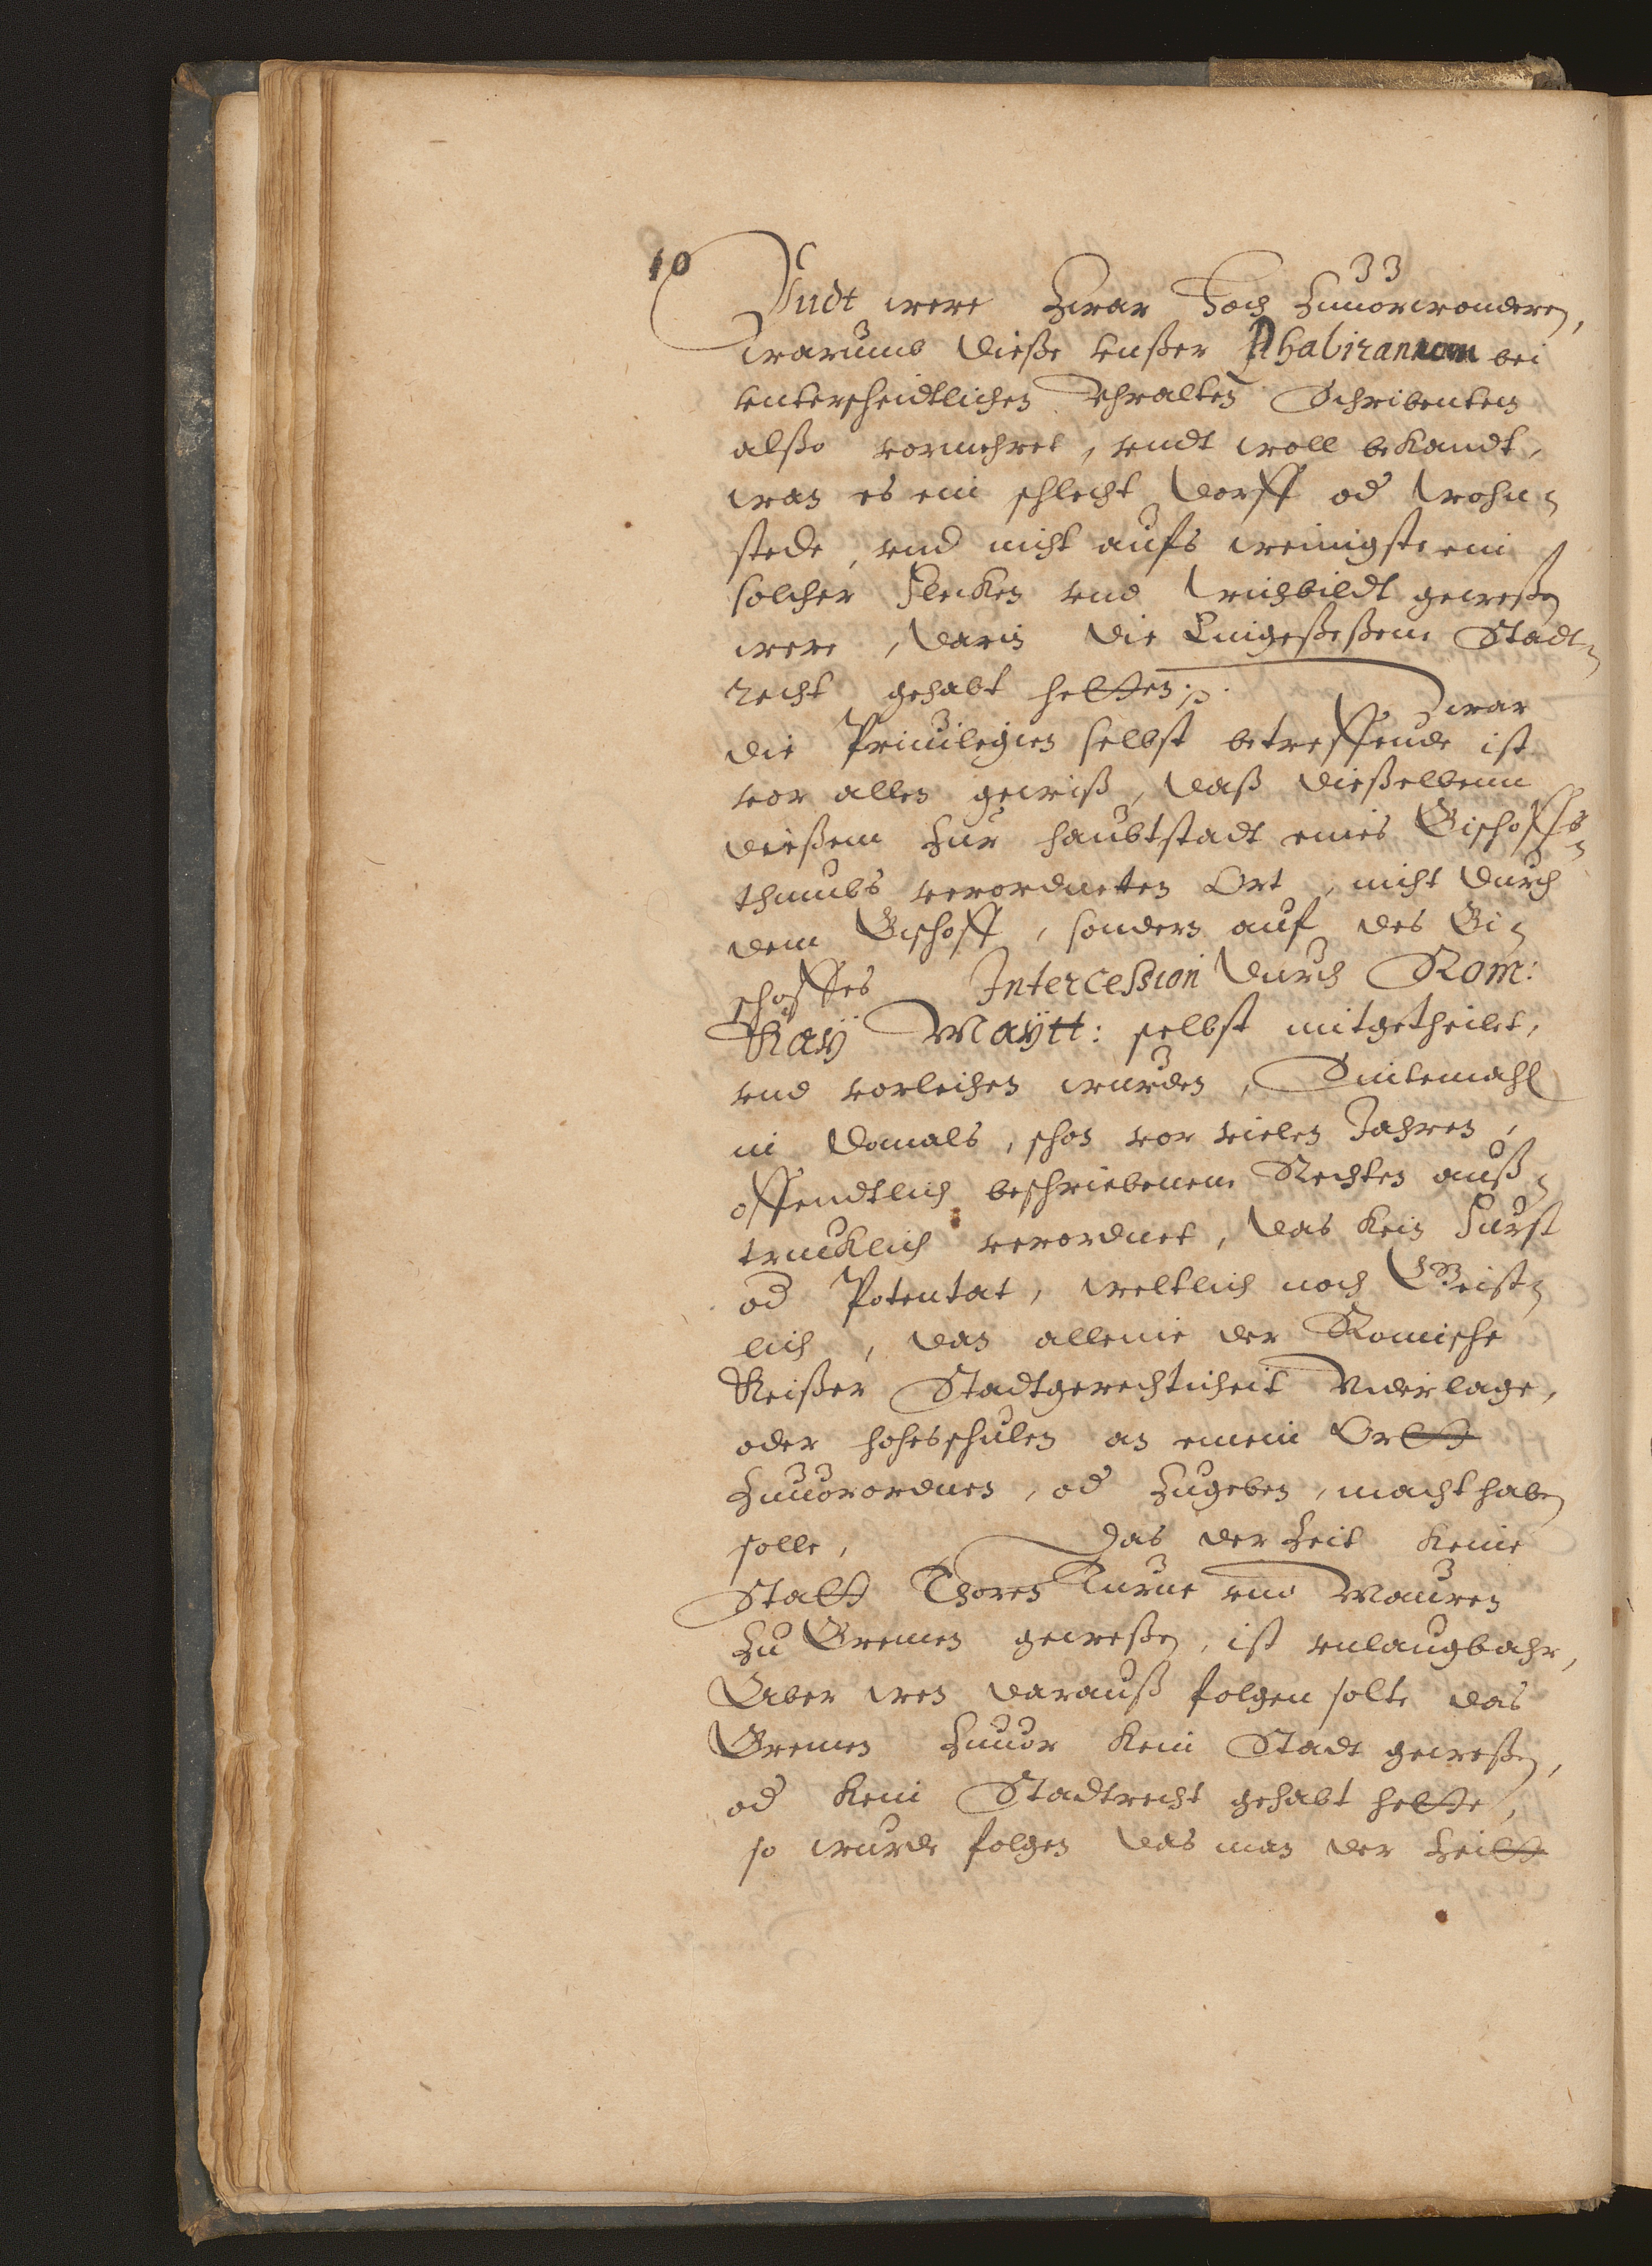 10
Vndt were zwar hoch zuuorwonderen,
warumb dieße vnßer Phabiranum bei
vnterscheidtlichen vhralten Schribenten
alßo vormehret, vndt woll bekandt,
wan es ein schlecht dorff od wohn-
stede, vnd nicht aufs weinigste ein
solcher Flecken vnd weichbildt geweßen
were, darin die Eingeseßene Stadt-
recht gehabt hetten. Zwar
die Priuilegien selbst betreffende ist
vor allen gewiß, daß dießelbenn
dießem zur haubtstadt eines Bischoffs-
thumbs verordneten Ort, nicht durch
dem Bischoff, sondern auf des Bi-
schoffes Intercession durch Rom:
Kay Maytt: selbst mitgetheilet,
vnd vorleihen wurden, Sintemahl
in damals, schon vor vielen Jahren,
offendtlich beschriebenem Rechten auß-
trucklich verordnet, das kein Furst
od Potentat, weltlich noch Geist-
lich, dan alleine der Romische
Keißer Stadtgerechticheit Niderlage,
oder hoheschulen an einem Ortt
zuuorordnen, od zugeben, macht haben
solle, Das der Zeit keine
Statt Thoren Turne vnd Mauren
zu Bremen geweßen, ist vnlaugbahr,
Aber wen darauß folgen solte das
Bremen zuuor kein Stadt geweßen,
od kein Stadtrecht gehabt hette,
so wurde folgen das man der Zeitt